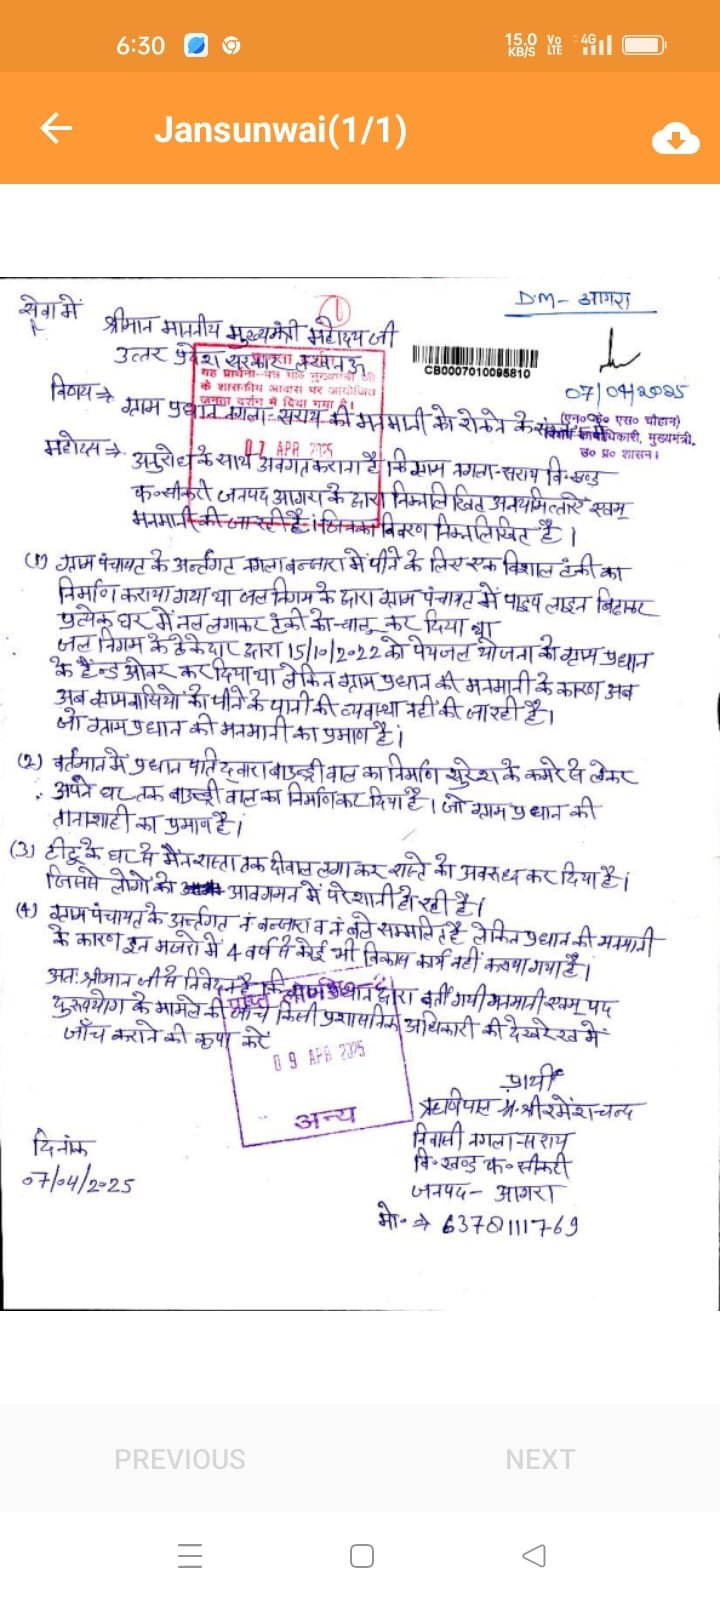 6:30
15.0 KB/S Vo LTE 4G
Jansunwai(1/1)
DM- आगरा
सेवा में
श्रीमान माननीय मुख्यमंत्री महोदय जी
उत्तर प्रदेश सरकार लखनऊ
CB0007010095810
यह प्रार्थना-पत्र मा० मुख्यमंत्री जी
के शासकीय आवास पर आयोजित
जनता दर्शन में दिया गया है।
07/04/2025
विषय→ ग्राम प्रधान नगला-सराय की मनमानी को रोकने के
(एन०के० एस० चौहान)
कार्याधिकारी, मुख्यमंत्री,
उ० प्र० शासन।
07 APR 2025
महोदय→ अनुरोध के साथ अवगत कराना है कि ग्राम नगला-सराय वि-खण्ड
क०सीकरी जनपद आगरा के द्वारा निम्नलिखित अनयमित्ताऐं एवम्
मनमानी की जा रही है। जिनका विवरण निम्नलिखित है।
(1) ग्राम पंचायत के अर्न्तगत नगला बन्जारा में पीने के लिए एक विशाल टंकी का
निर्माण कराया गया था जल निगम के द्वारा ग्राम पंचायत में पाइप लाइन बिछाकर
प्रत्येक घर में नल लगाकर टंकी को चालू कर दिया था
जल निगम के ठेकेदार द्वारा 15/10/2022 को पेयजल योजना को ग्राम प्रधान
के हैन्ड ओवर कर दिया था लेकिन ग्राम प्रधान की मनमानी के कारण अब
अब ग्रामवासियो को पीने के पानी की व्यवस्था नहीं की जा रही है।
जो ग्राम प्रधान की मनमानी का प्रमाण है।
(2) वर्तमान में प्रधान पति द्वारा बाउन्ड्री वाल का निर्माण सुरेश के कमरे से लेकर
अपने घर तक बाउन्ड्री वाल का निर्माण कर दिया है। जो ग्राम प्रधान की
तानाशाही का प्रमाण है।
(3) टीटू के घर से मैन रास्ता तक दीवाल लगाकर रास्ते को अवरुध कर दिया है।
जिससे लोगो को आवागमन में परेशानी हो रही है।
(4) ग्राम पंचायत के अर्न्तगत नं बन्जारा व नं बले सम्मलित है लेकिन प्रधान की मनमानी
के कारण इन मजरो में 4 वर्ष से कोई भी विकास कार्य नहीं कराया गया है।
अतः श्रीमान जी से निवेदन है कि ग्राम प्रधान द्वारा बर्ती गयी मनमानी एवम् पद
दुरूपयोग के मामले की जाँच किसी प्रशासनिक अधिकारी की देखरेख में
जाँच कराने की कृपा करें
09 APR 2025
अन्य
प्रार्थी
ऋषिपाल श्री रमेशचन्द
निवासी नगला-सराय
वि०खण्ड क०सीकरी
जनपद- आगरा
मो०→ 6378111769
दिनांक
07/04/2025
PREVIOUS
NEXT